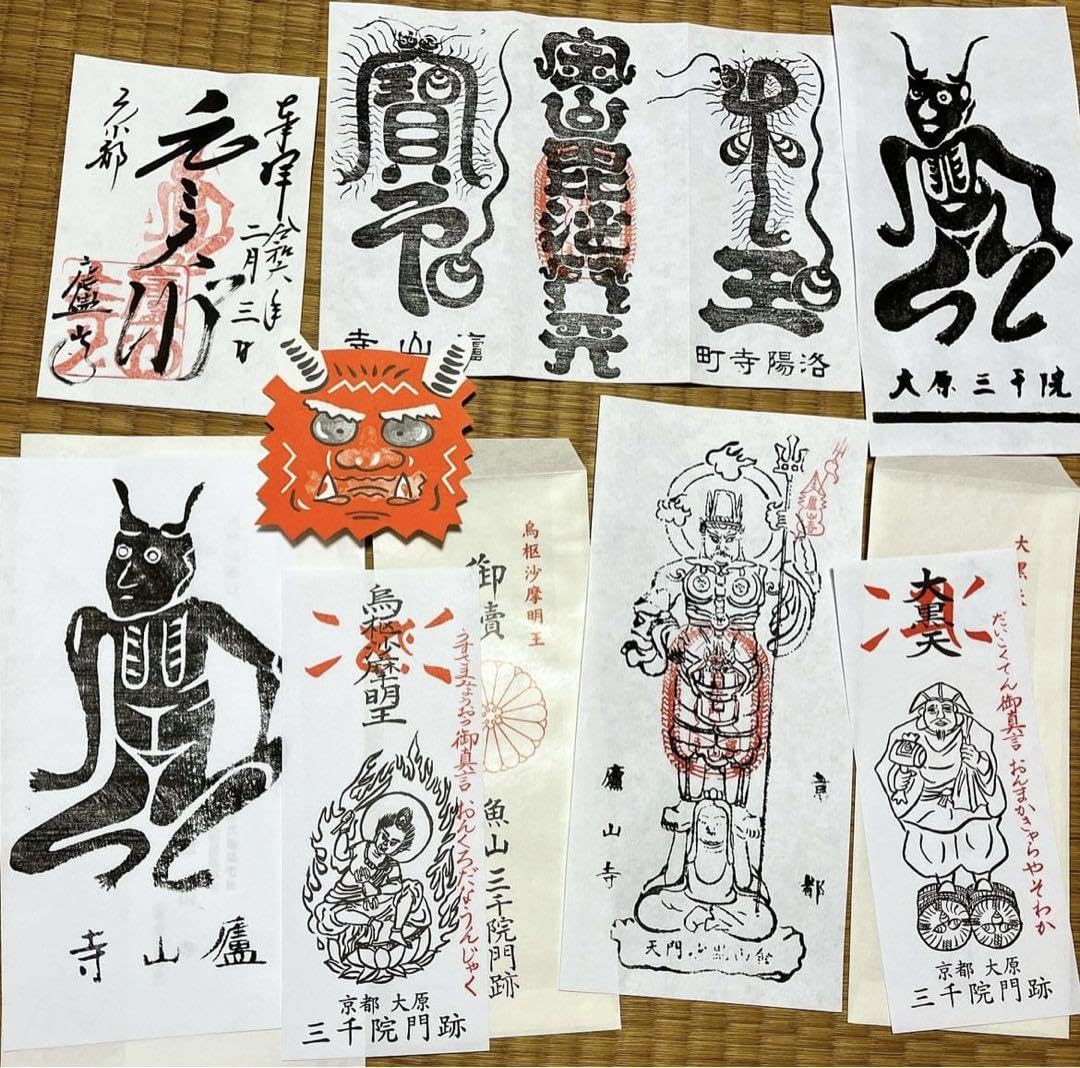 奉拝
令和六年
二月三日
元三大師
京都
廬山寺
洛陽寺町
廬山寺
大原三千院
廬山寺
烏枢沙摩明王
うすさまみょうおう御真言 おんくろだなうんじゃく
京都 大原
三千院門跡
烏枢沙摩明王
御
魚山三千院門跡
京都
廬山寺
大黒
大黒天
だいこくてん御真言 おんまかきゃらやそわか
京都 大原
三千院門跡